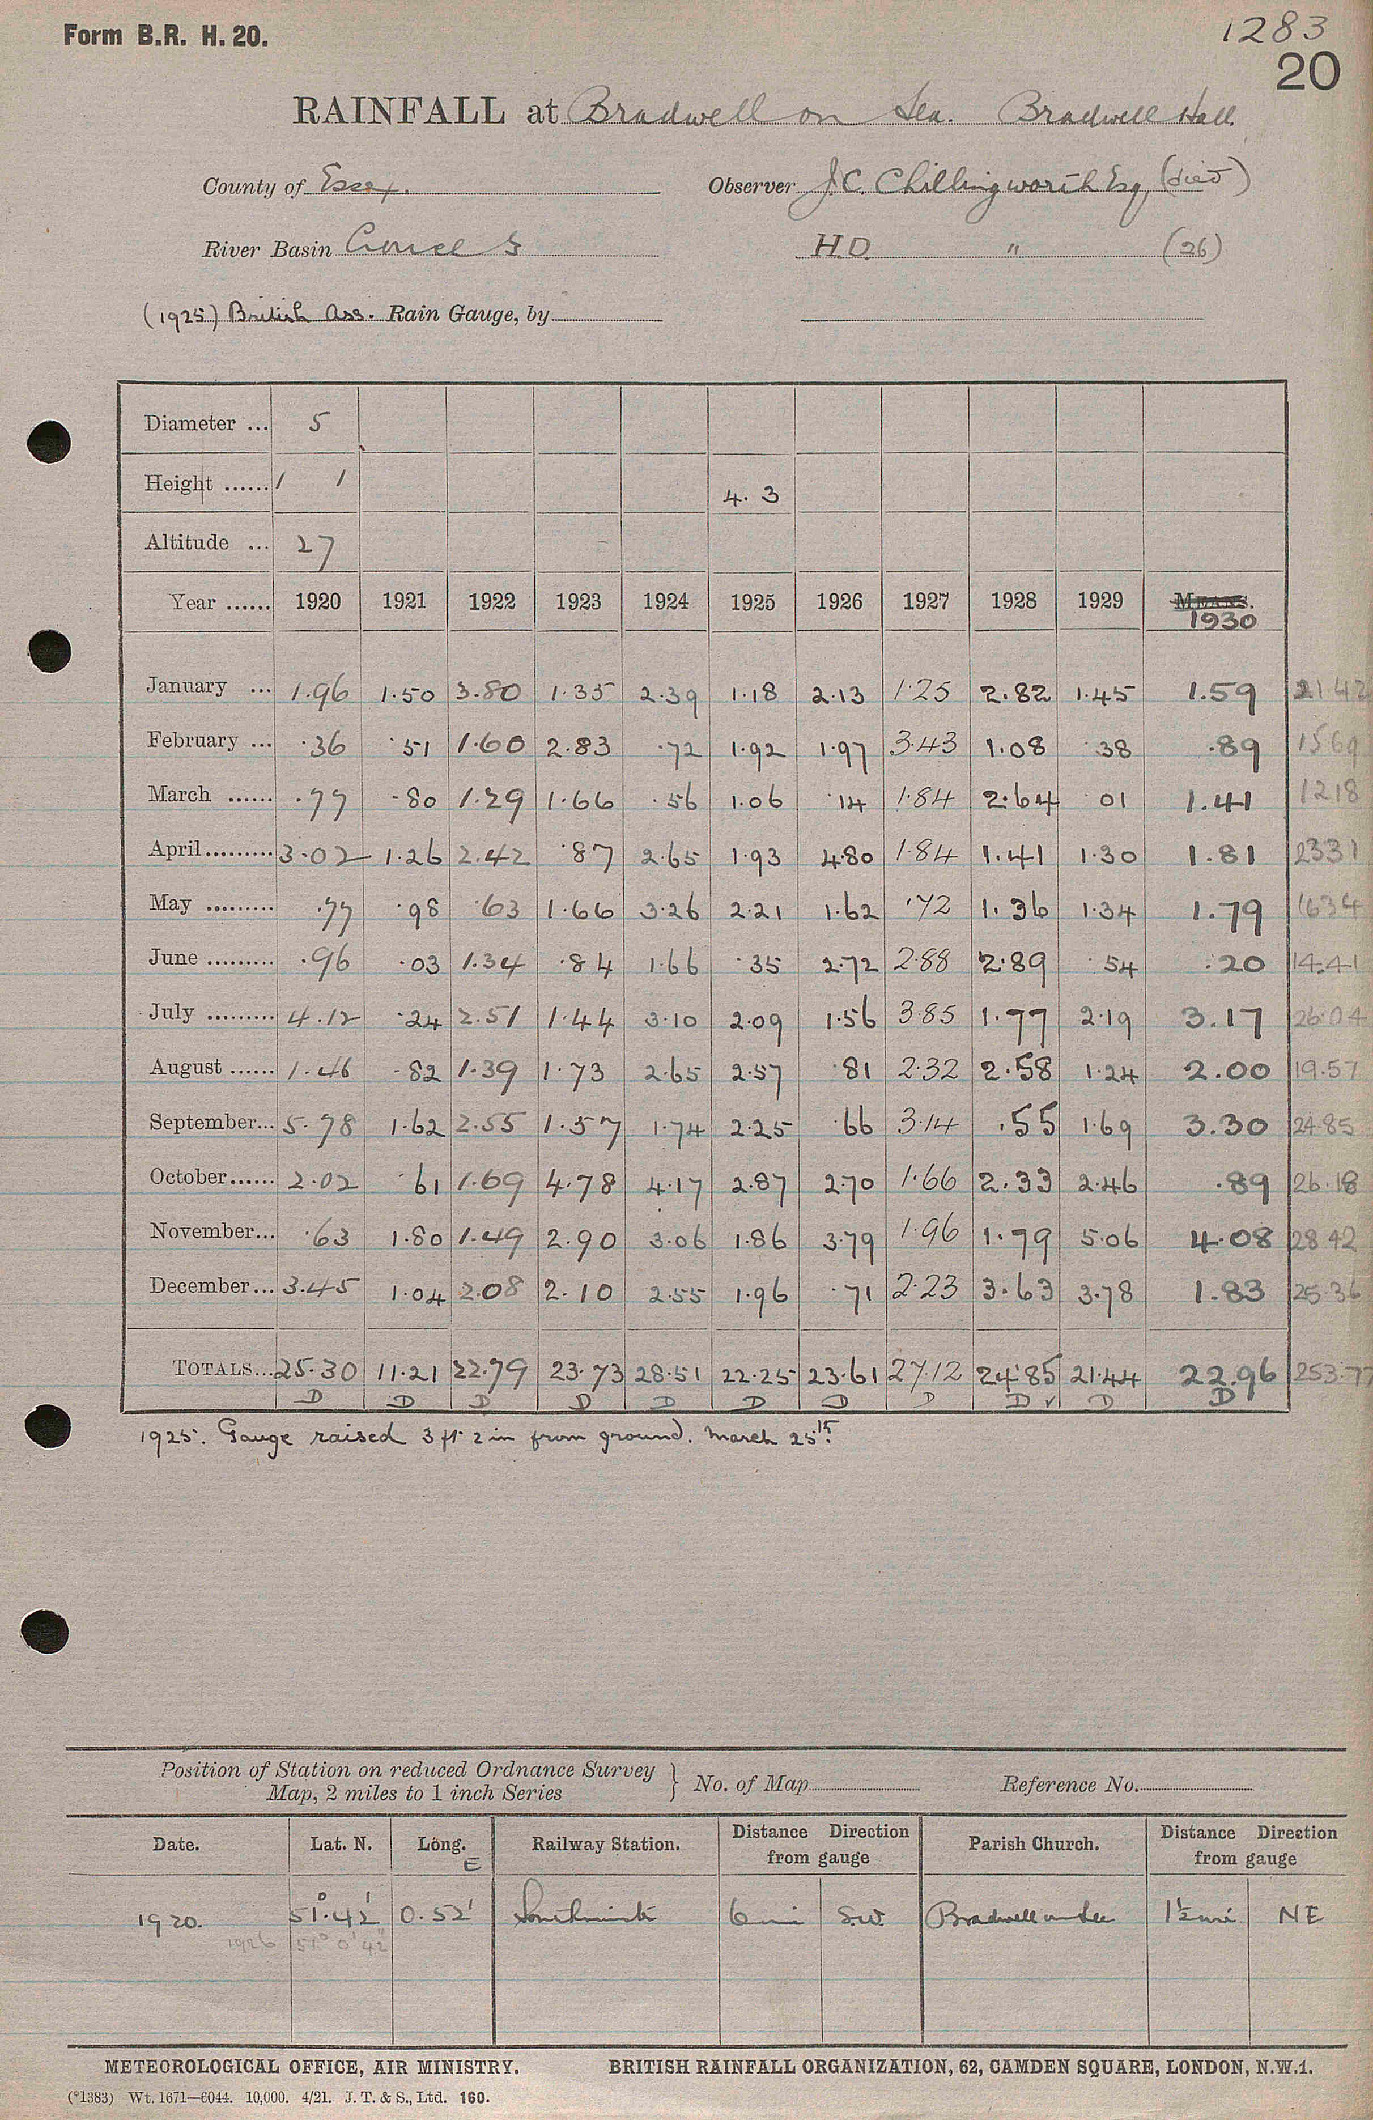 Form B.R. H. 20.
1283
20
RAINFALL at Bradwell on Sea. Bradwell Hall.
County of Essex. Observer J.C. Chillingworth Esq. (died)
River Basin H.D. " (26)
(1925) British Ass. Rain Gauge, by
Diameter ... 5
Height ...... 1 1 4. 3
Altitude ... 27
Year ...... 1920 1921 1922 1923 1924 1925 1926 1927 1928 1929 MEANS. 1930
January ... 1.96 1.50 3.80 1.35 2.39 1.18 2.13 1.25 2.82 1.45 1.59 21.42
February ... .36 .51 1.60 2.83 .72 1.92 1.97 3.43 1.08 .38 .89 1569
March ...... .77 .80 1.29 1.66 .56 1.06 .14 1.84 2.64 01 1.41 1218
April ......... 3.02 1.26 2.42 .87 2.65 1.93 4.80 1.84 1.41 1.30 1.81 2331
May ......... .77 .98 .63 1.66 3.26 2.21 1.62 .72 1.36 1.34 1.79 1634
June ......... .96 .03 1.34 .84 1.66 .35 2.72 2.88 2.89 .54 .20 14.41
July ......... 4.12 .24 2.51 1.44 3.10 2.09 1.56 3.85 1.77 2.19 3.17 26.04
August ...... 1.46 .82 1.39 1.73 2.65 2.57 .81 2.32 2.58 1.24 2.00 19.57
September... 5.78 1.62 2.55 1.57 1.74 2.25 .66 3.14 .55 1.69 3.30 24.85
October...... 2.02 .61 1.69 4.78 4.17 2.87 2.70 1.66 2.33 2.46 .89 26.18
November... .63 1.80 1.49 2.90 3.06 1.86 3.79 1.96 1.79 5.06 4.08 28.42
December... 3.45 1.04 2.08 2.10 2.55 1.96 .71 2.23 3.63 3.78 1.83 25.36
TOTALS... 25.30 11.21 22.79 23.73 28.51 22.25 23.61 27.12 24.85 21.44 22.96 253.77
D D D D D D D D D ✓ D D
1925. Gauge raised 3 ft 2 in from ground. March 25th.
Position of Station on reduced Ordnance Survey
Map, 2 miles to 1 inch Series } No. of Map Reference No.
Date. Lat. N. Long. E Railway Station. Distance Direction from gauge Parish Church. Distance Direction from gauge
1920. 51°.42' 0.52' Southminster 6 mi S.W. Bradwell on Sea 1½ mi NE
1926 51° 0' 42"
METEOROLOGICAL OFFICE, AIR MINISTRY. BRITISH RAINFALL ORGANIZATION, 62, CAMDEN SQUARE, LONDON, N.W.1.
(*1383) Wt. 1671—6044. 10,000. 4/21. J. T. & S., Ltd. 160.